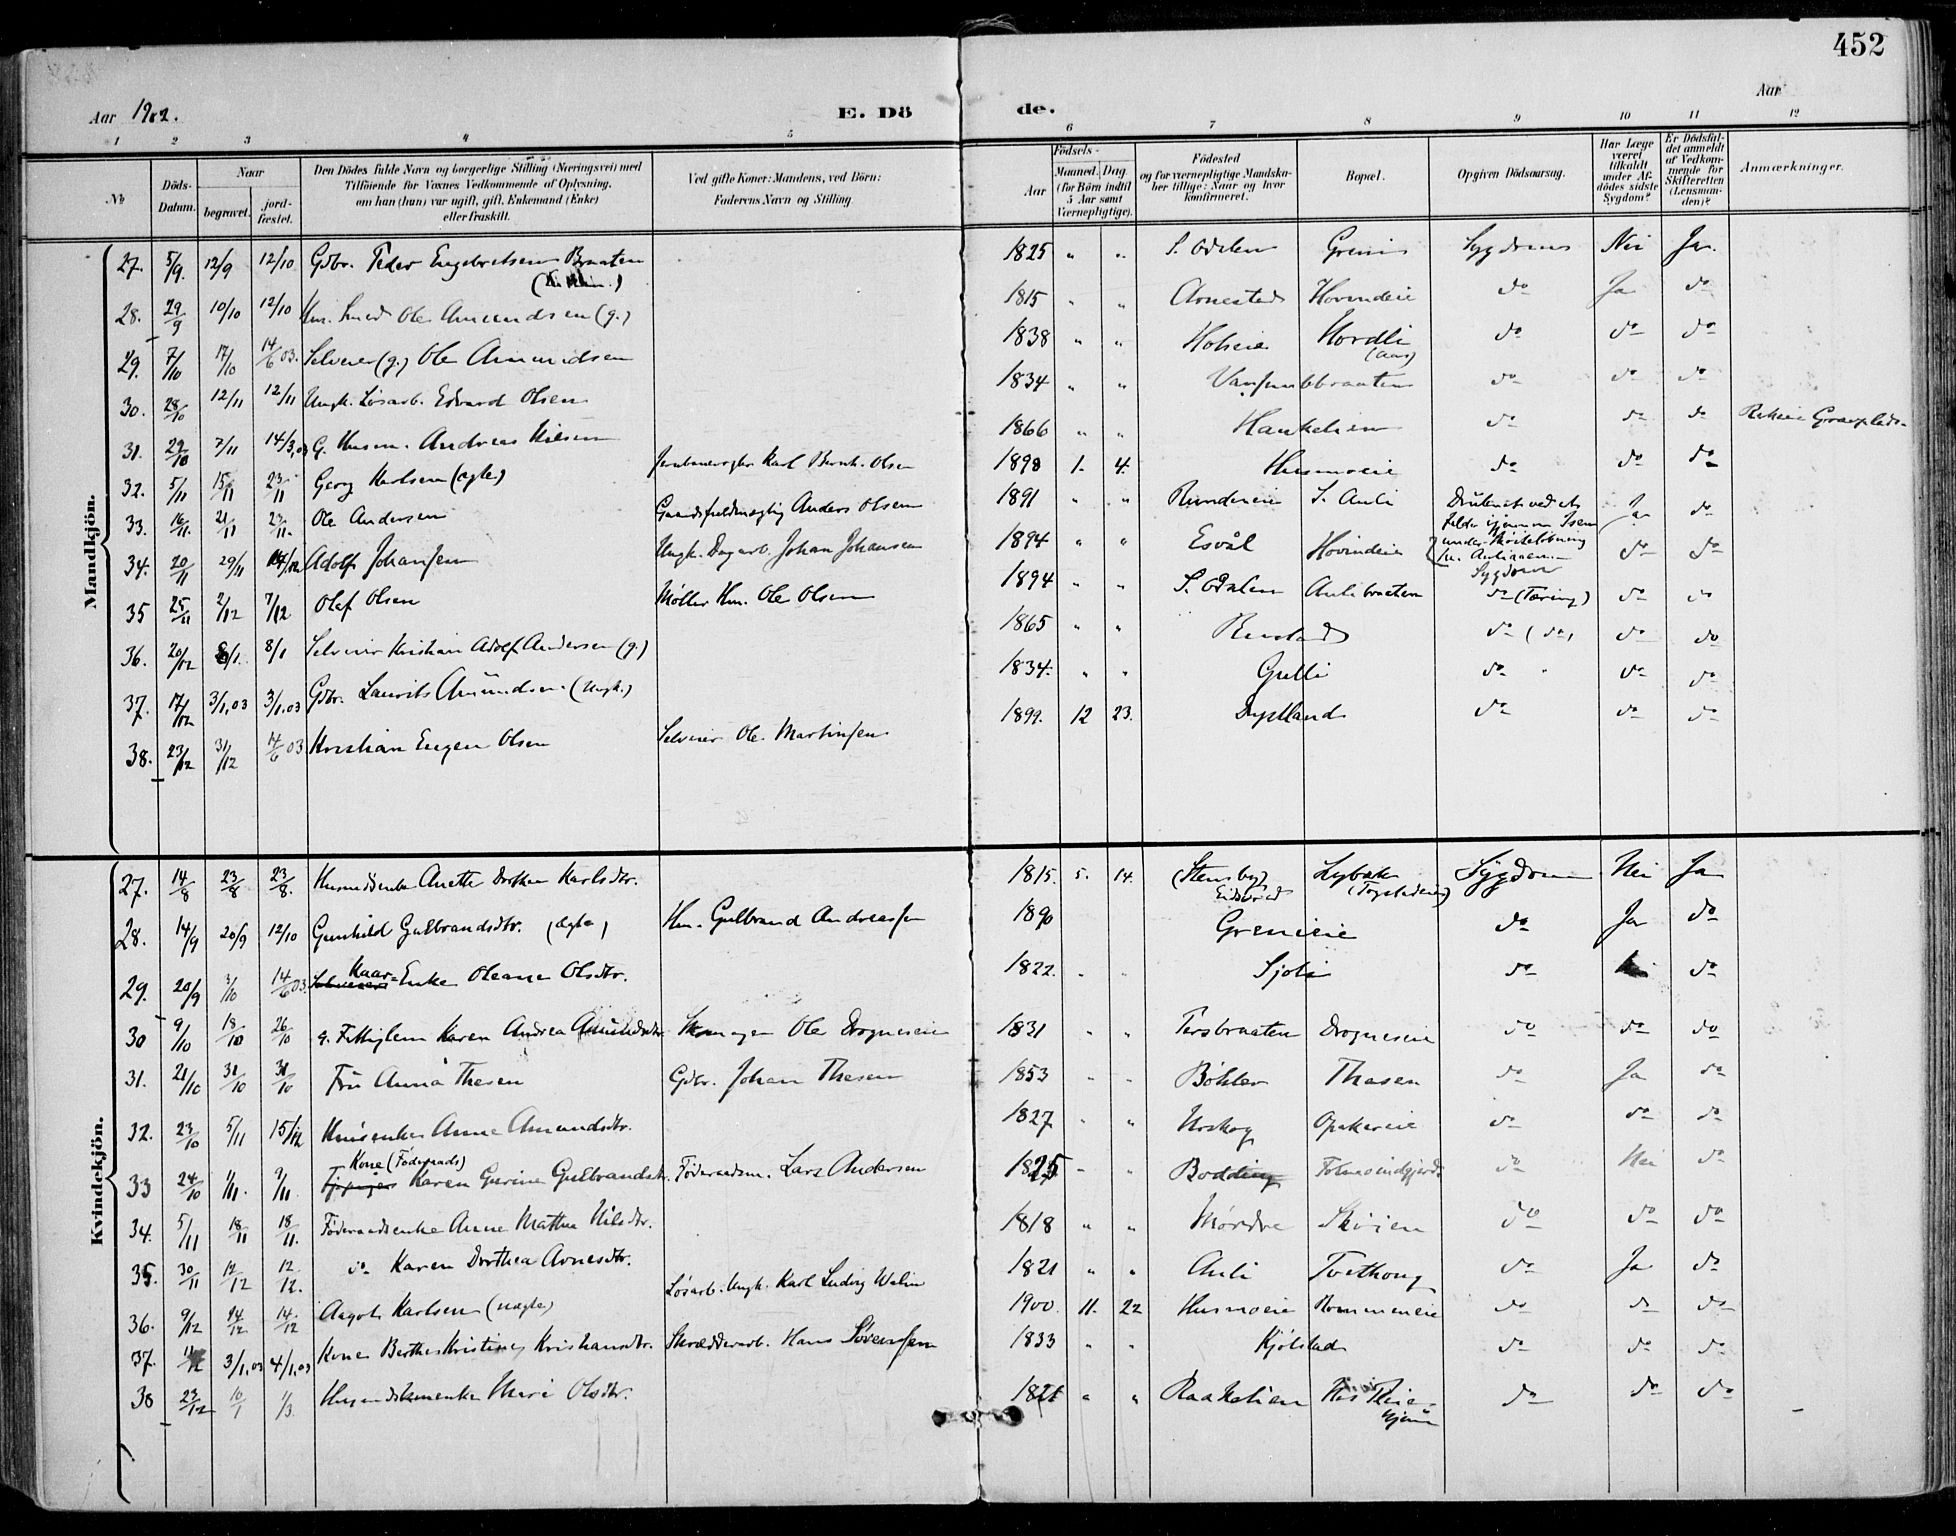 452
Aar 1902. E. Döde. Aar
1 2 3 4 5 6 7 8 9 10 11 12
№ Döds-Datum. Naar begravet. jord-fæstet. Den Dödes fulde Navn og borgerlige Stilling (Næringsvei) med Tilföiende for Voxnes Vedkommende af Oplysning, om han (hun) var ugift, gift, Enkemand (Enke) eller fraskilt. Ved gifte Koner: Mandens, ved Börn: Faderens Navn og Stilling. Födsels- Aar Maaned. Dag (for Börn indtil 5 Aar samt Værnepligtige). Födested og for værnepligtige Mandskaber tillige: Naar og hvor konfirmeret. Bopæl. Opgiven Dödsaarsag. Har Læge været tilkaldt under Afdödes sidste Sygdom? Er Dödsfaldet anmeldt af Vedkommende for Skifteretten (Lensmanden)? Anmærkninger.
Mandkjön.
27. 5/9. 12/9 12/10 Gdbr. Peder Engebretsen Braaten 1825 " " S. Odalen Greni Sygdom Nei Ja.
28. 29/9 10/10 12/10 Hm. Smed Ole Amundsen (g.) 1815 " " Arnestad Hovindeie do Ja do
29. 7/10 17/10 14/6 03. Selveier (g.) Ole Amundsen 1838 " " Holseie Hordli (Aas) do do do
30. 28/10 12/11 12/11 Ungk. Løsarb. Edvard Olsen 1834 " " do do do
31. 29/10 7/11 14/3,03 G. Husm. Andreas Nilsen 1866 " " Haukelien do do do
32. 5/11 15/11 23/11 Georg Karlsen (ægte) Karl Bernh. Olsen 1898 1. 4. Husmoeie do do do
33. 16/11. 21/11 23/11. Ole Andersen Gaardsfuldmægtig Anders Olsen 1891 " " Rundereie S. Auli Druknet ved at falde igjennem Isen under Skøiteløbning Ja do
34. 20/11 29/11 Adolf Johansen Ungk. Dagarb. Johan Johansen 1894 " " Esvål Hovindeie Sygdom do do
35 25/11 2/12 7/12 Olaf Olsen Møller Hm. Ole Olsen 1894 " " S. Odalen Aulibraaten do (Tæring) do do
36. 20/12 8/1. 8/1 Selveier Kristian Adolf Andersen (g.) 1865 " " Renstad do (do) do do
37. 17/12 3/1,03 3/1,03 Gdbr. Laurits Amundsen (Ungk.) 1834. " " Gulli do do do
38. 23/12 31/12 14/6 03 Kristian Eugen Olsen Selveier Ole Martinsen 1899. 12 23. Dystland do do do
Kvindekjön.
27. 14/8 23/8 23/8. Husmdsenke Anette Dorthea Karlsdtr. 1815. 5. 14. (Stensby) Eidsvold Lybæk (Togstadeie) Sygdom Nei Ja
28. 14/9 20/9 12/10 Gunhild Gulbrandsdtr. (ægte) Hm. Gulbrand Andreassen 1890 Grenieie do Ja do
29. 20/9 3/10 14/6 03. Kaar-Enke Oleane Olsdtr. 1822. " " Sjoli do do
30 9/10 18/10 26/10 g. Fattiglem Karen Andrea Amundsdtr. Skomager Ole Drogneseie 1831 " " Tersbraaten Drogneseie do do do
31. 21/10 31/10 31/10 Fru Anna Thesen Gdbr. Johan Thesen 1853 " " Bøhler Thesen do Ja do
32. 23/10 5/11 15/12 Husenke Anne Amundsdtr. 1827 " " Urskog Opakereie do do do
33 24/10 1/11. 9/11. Kone (Føderaads) Karen Gurine Gulbrandsdtr. Føderaadsm. Lars Andersen 1825 " " Bodding do Nei do
34. 5/11 18/11 18/11. Føderaadsenke Anne Mathea Nilsdtr. 1818 " " Mørdre Skøien do do do
35. 30/11 12/12 12/12. do Karen Dorthea Arnesdtr. 1821 " " Auli Tvethoug do Ja do
36. 9/12 14/12 14/12 Aagot Karlsen (uægte) Løsarb. Ungk. Karl Ludvig Walin 1900. 11. 22 Husmoeie Rommeneie do do do
37. 3/1,03 4/1,03 Kone Berthe Kristine Kristiansdtr. Skrædderarb. Hans Sørensen 1833 " " Kjølstad do do do
38 23/12 10/1 1/3. Marie Olsdtr. 1821 " " Raakelien do do do